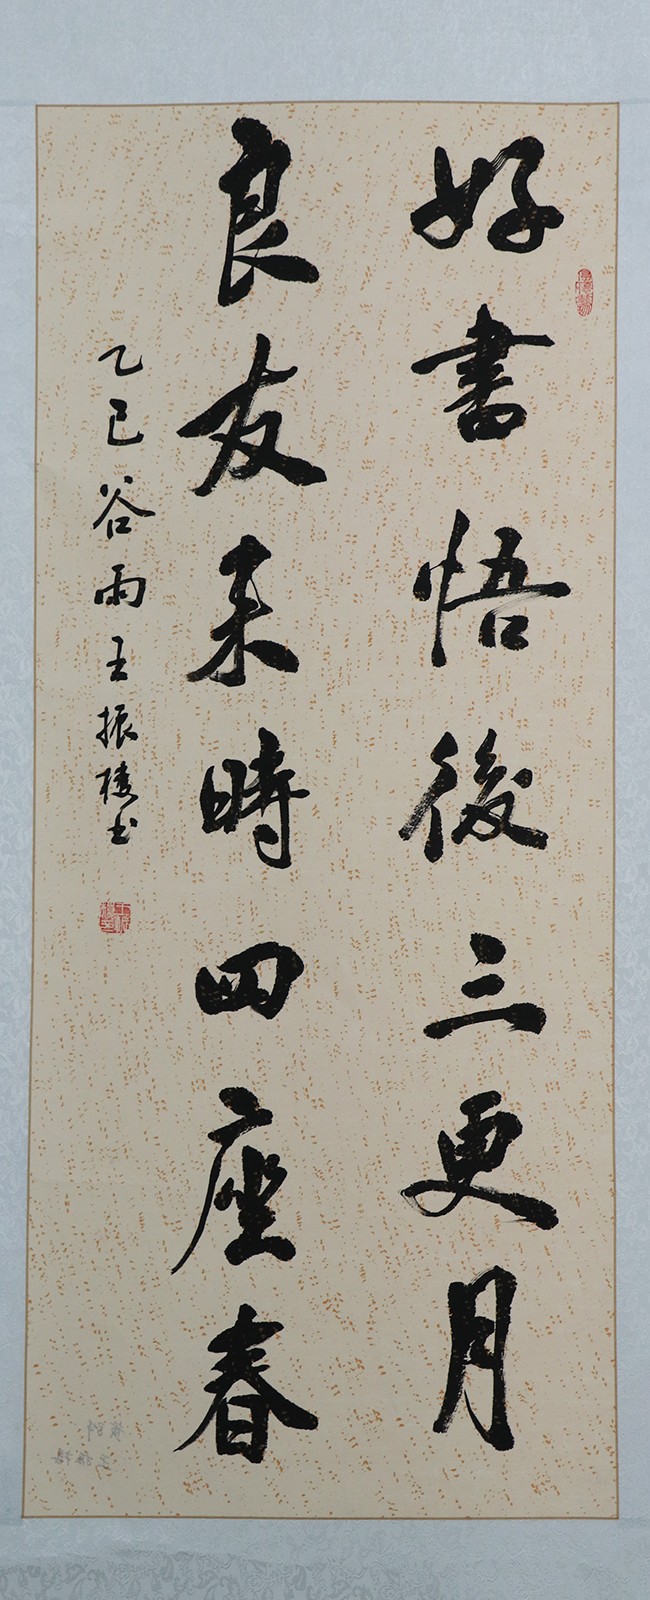 好書悟後三更月
良友来時四座春
乙巳谷雨王振樓书